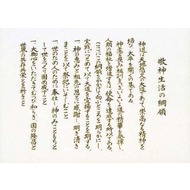 敬神生活の綱領
神道は天地悠久の大道であって崇高なる精神を
培ひ太平を開くの基である
神慮を畏み祖訓をつぎいよいよ道の精華を発揮し
人類の福祉を増進するは使命を達成する所以である
ここにこの綱領をかかげて向ふところを明らかにし
実践につとめて以て大道を宣揚することを期する
一神の恵みと祖先の恩とに感謝し明き清き
まことを以て祭祀にいそしむこと
一世のため人のために奉仕し神のみこともち
として世をつくり固め成すこと
一大御心をいただきてむつび和らぎ国の隆昌と
世界の共存共栄とを祈ること